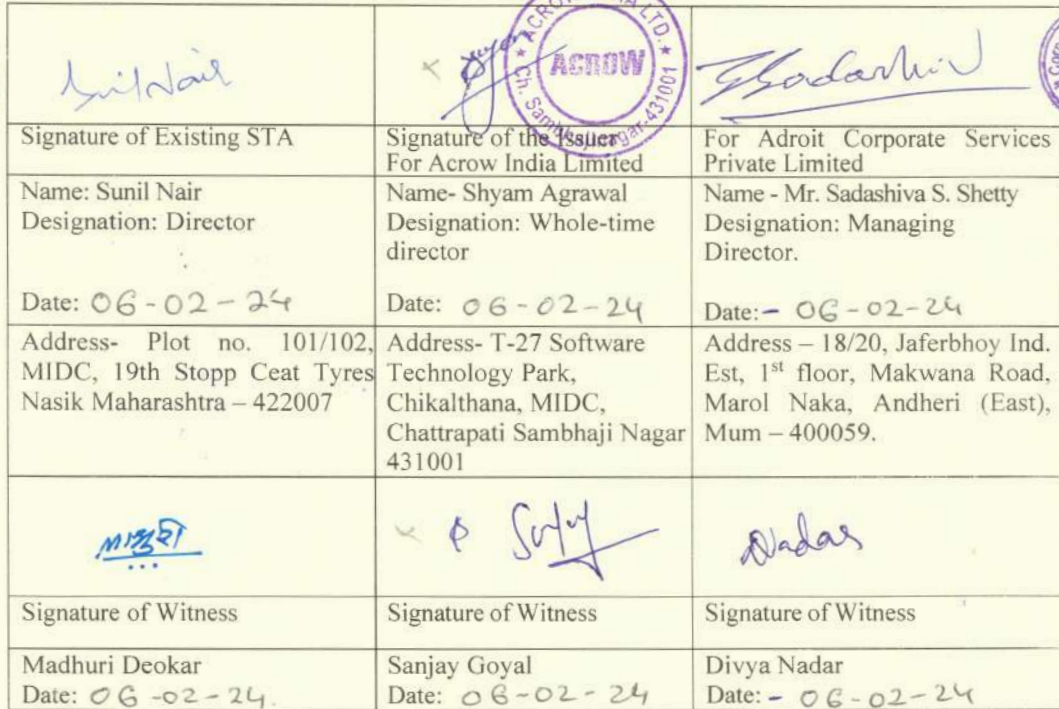 Sunil Nair
ACROW INDIA LTD.
ACROW
Ch. Sambhajinagar-431001
SSadashiv
Signature of Existing STA
Signature of the Issuer
For Acrow India Limited
For Adroit Corporate Services
Private Limited
Name: Sunil Nair
Designation: Director
Date: 06-02-24
Name- Shyam Agrawal
Designation: Whole-time
director
Date: 06-02-24
Name - Mr. Sadashiva S. Shetty
Designation: Managing
Director.
Date:- 06-02-24
Address- Plot no. 101/102,
MIDC, 19th Stopp Ceat Tyres
Nasik Maharashtra – 422007
Address- T-27 Software
Technology Park,
Chikalthana, MIDC,
Chattrapati Sambhaji Nagar
431001
Address – 18/20, Jaferbhoy Ind.
Est, 1st floor, Makwana Road,
Marol Naka, Andheri (East),
Mum – 400059.
Nadar
Signature of Witness
Signature of Witness
Signature of Witness
Madhuri Deokar
Date: 06-02-24.
Sanjay Goyal
Date: 06-02-24
Divya Nadar
Date:- 06-02-24